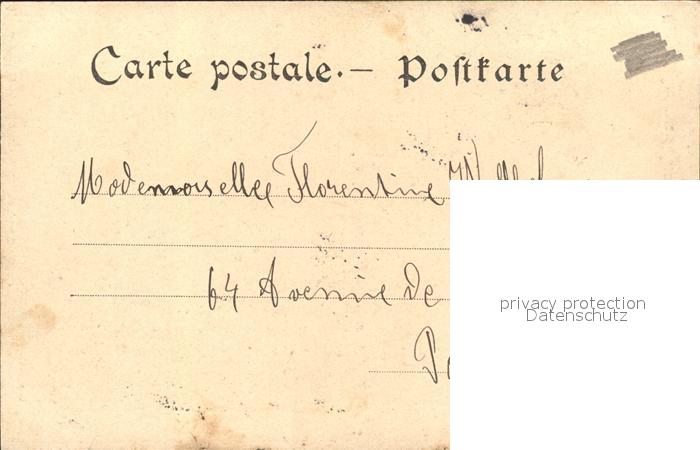 Carte postale.— Postkarte
Mademoiselle Florentine
64 Avenue de
privacy protection
Datenschutz